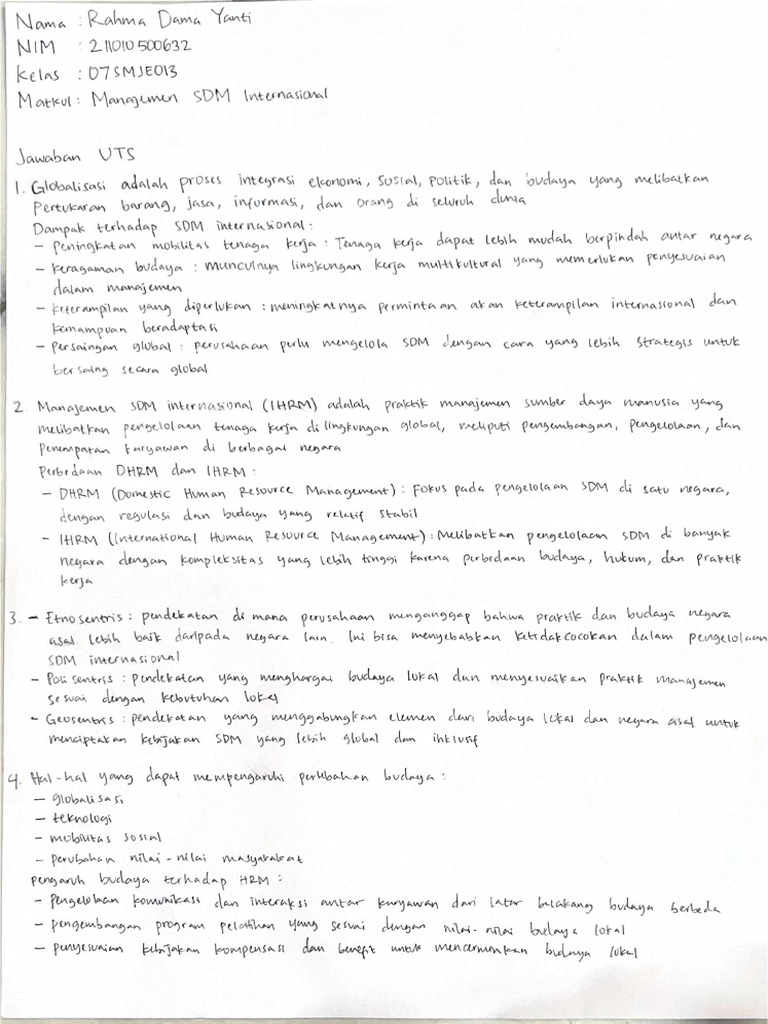 Nama : Rahma Dama Yanti
NIM : 211010500632
Kelas : 07SMJE013
Matkul : Manajemen SDM Internasional
Jawaban UTS
1. Globalisasi adalah proses integrasi ekonomi, sosial, politik, dan budaya yang melibatkan
pertukaran barang, jasa, informasi, dan orang di seluruh dunia
Dampak terhadap SDM internasional :
- Peningkatan mobilitas tenaga kerja : Tenaga kerja dapat lebih mudah berpindah antar negara
- Keragaman budaya : munculnya lingkungan kerja multikultural yang memerlukan penyesuaian
dalam manajemen
- Keterampilan yang diperlukan : meningkatnya permintaan akan keterampilan internasional dan
kemampuan beradaptasi
- Persaingan global : perusahaan perlu mengelola SDM dengan cara yang lebih strategis untuk
bersaing secara global
2. Manajemen SDM internasional (IHRM) adalah praktik manajemen sumber daya manusia yang
melibatkan pengelolaan tenaga kerja di lingkungan global, meliputi pengembangan, pengelolaan, dan
penempatan karyawan di berbagai negara
Perbedaan DHRM dan IHRM :
- DHRM (Domestic Human Resource Management) : Fokus pada pengelolaan SDM di satu negara,
dengan regulasi dan budaya yang relatif stabil
- IHRM (International Human Resource Management) : Melibatkan pengelolaan SDM di banyak
negara dengan kompleksitas yang lebih tinggi karena perbedaan budaya, hukum, dan praktik
kerja
3. - Etnosentris : pendekatan di mana perusahaan menganggap bahwa praktik dan budaya negara
asal lebih baik daripada negara lain. Ini bisa menyebabkan ketidakcocokan dalam pengelolaan
SDM internasional
- Polisentris : pendekatan yang menghargai budaya lokal dan menyesuaikan praktik manajemen
sesuai dengan kebutuhan lokal
- Geosentris : pendekatan yang menggabungkan elemen dari budaya lokal dan negara asal untuk
menciptakan kebijakan SDM yang lebih global dan inklusif
4. Hal-hal yang dapat mempengaruhi perubahan budaya :
- globalisasi
- teknologi
- mobilitas sosial
- perubahan nilai-nilai masyarakat
pengaruh budaya terhadap HRM :
- Pengelolaan komunikasi dan interaksi antar karyawan dari latar belakang budaya berbeda
- pengembangan program pelatihan yang sesuai dengan nilai-nilai budaya lokal
- penyesuaian kebijakan kompensasi dan benefit untuk mencerminkan budaya lokal